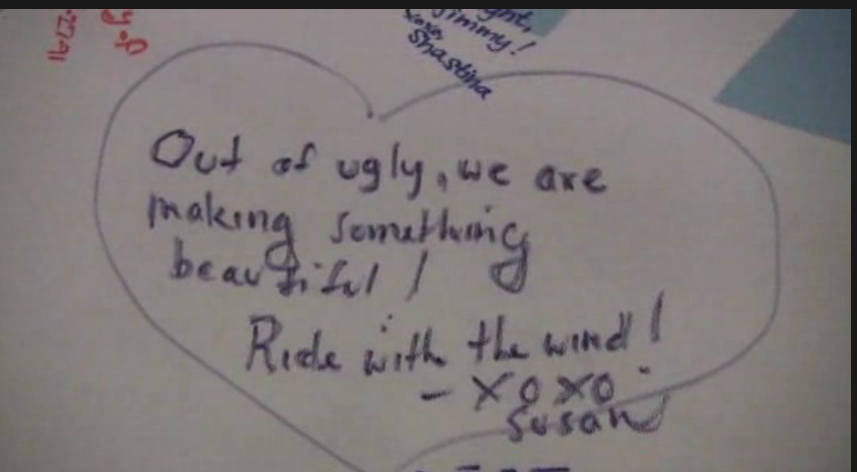 Jimmy!
xoxo,
Shastina
Out of ugly, we are
making something
beautiful!
Ride with the wind!
- XOXO
Susan